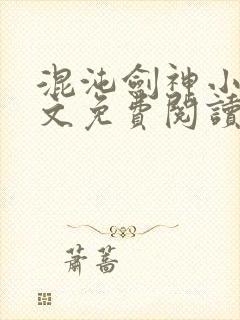 混沌劍神小
文免費閱讀
蕭蒿